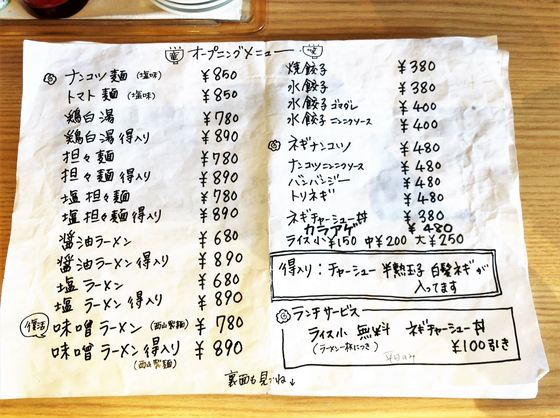 オープニングメニュー
ナンコツ麺 (塩味) ¥850
トマト麺 (塩味) ¥850
鶏白湯 ¥780
鶏白湯 得入り ¥890
担々麺 ¥780
担々麺 得入り ¥890
塩担々麺 ¥780
塩担々麺 得入り ¥890
醤油ラーメン ¥680
醤油ラーメン 得入り ¥890
塩ラーメン ¥680
塩ラーメン 得入り ¥890
復活
味噌ラーメン (西山製麺) ¥780
味噌ラーメン 得入り ¥890
(西山製麺)
焼餃子 ¥380
水餃子 ¥380
水餃子 ゴマダレ ¥400
水餃子 ニンニクソース ¥400
ネギナンコツ ¥480
ナンコツニンニクソース ¥480
バンバンジー ¥480
トリネギ ¥480
ネギチャーシュー丼 ¥380
カラアゲ ¥480
ライス小¥150 中¥200 大¥250
得入り：チャーシュー 半熟玉子 白髪ネギが
入ってます
ランチサービス
ライス小 無料 ネギチャーシュー丼
(ラーメン一杯につき) 平日のみ ¥100引き
裏面も見てね↓